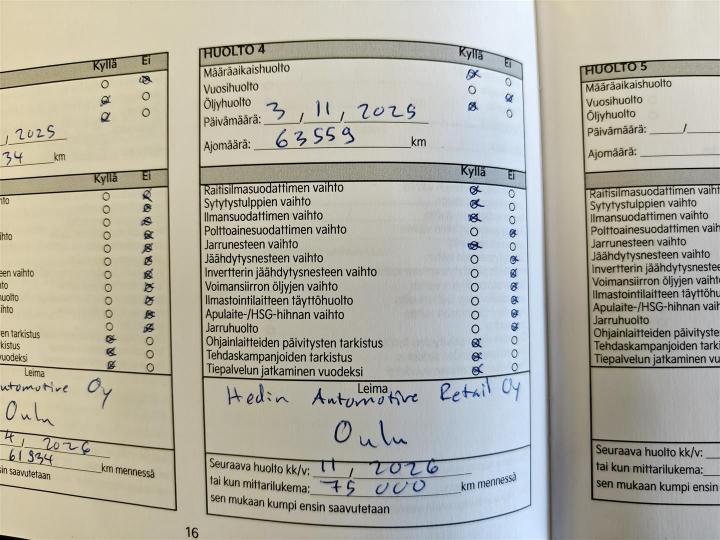 Kyllä Ei
, 2025
34 km
Kyllä Ei
hto
een vaihto
en tarkistus
kistus
vuodeksi
Leima
utomotive Oy
Oulu
4, 2026
61934 km mennessä
in saavutetaan
HUOLTO 4
Kyllä Ei
Määräaikaishuolto
Vuosihuolto
Öljyhuolto
Päivämäärä: 3, 11, 2025
Ajomäärä: 63559 km
Kyllä Ei
Raitisilmasuodattimen vaihto
Sytytystulppien vaihto
Ilmansuodattimen vaihto
Polttoainesuodattimen vaihto
Jarrunesteen vaihto
Jäähdytysnesteen vaihto
Invertterin jäähdytysnesteen vaihto
Voimansiirron öljyjen vaihto
Ilmastointilaitteen täyttöhuolto
Apulaite-/HSG-hihnan vaihto
Jarruhuolto
Ohjainlaitteiden päivitysten tarkistus
Tehdaskampanjoiden tarkistus
Tiepalvelun jatkaminen vuodeksi
Leima
Hedin Automotive Retail Oy
Oulu
Seuraava huolto kk/v: 11, 2026
tai kun mittarilukema: 75 000 km mennessä
sen mukaan kumpi ensin saavutetaan
16
HUOLTO 5
Määräaikaishuolto
Vuosihuolto
Öljyhuolto
Päivämäärä: /
Ajomäärä:
Raitisilmasuodattimen vaiht
Sytytystulppien vaihto
Ilmansuodattimen vaihto
Polttoainesuodattimen va
Jarrunesteen vaihto
Jäähdytysnesteen vaihto
Invertterin jäähdytysneste
Voimansiirron öljyjen vaih
Ilmastointilaitteen täyttöhu
Apulaite-/HSG-hihnan va
Jarruhuolto
Ohjainlaitteiden päivityste
Tehdaskampanjoiden tar
Tiepalvelun jatkaminen v
Seuraava huolto kk/v:
tai kun mittarilukema:
sen mukaan kumpi ensi